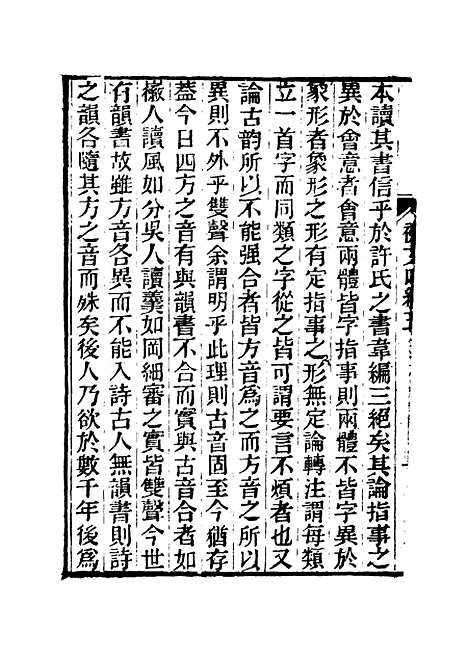 本讀其書信乎於許氏之書韋編三絕矣其論指事之
異於會意者會意兩體皆字指事則兩體不皆字異於
象形者象形之形有定指事之形無定論轉注謂每類
立一首字而同類之字從之皆可謂要言不煩者也又
論古韵所以不能强合者皆方音爲之而方音之所以
異則不外乎雙聲余謂明乎此理則古音固至今猶存
葢今日四方之音有與韻書不合而實與古音合者如
㯙人讀風如分吳人讀羹如岡細審之實皆雙聲今世
有韻書故雖方音各異而不能入詩古人無韻書則詩
之韻各隨其方之音而殊矣後人乃欲於數千年後爲